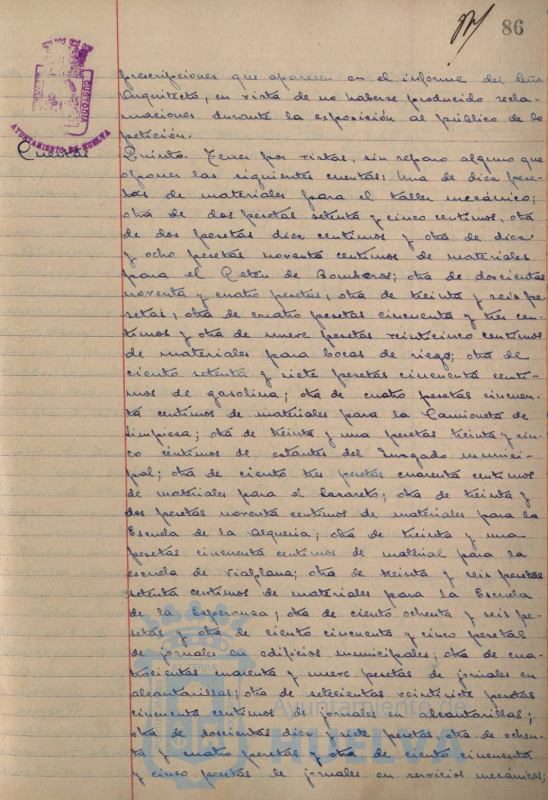 86
prescripciones que aparecen en el informe del Señor
Arquitecto, en vista de no haberse producido recla-
maciones durante la exposición al público de la
petición.
CUSTODIA
AYUNTAMIENTO DE HUELVA
Cuentas
Quinto. Tener por vistas, sin reparo alguno que
oponer las siguientes cuentas: Una de diez pese-
tas de materiales para el taller mecánico;
otra de dos pesetas setenta y cinco centimos, otra
de dos pesetas diez centimos y otra de diez
y ocho pesetas noventa centimos de materiales
para el Reten de Bomberos; otra de doscientas
noventa y cuatro pesetas, otra de treinta y seis pe-
setas, otra de cuatro pesetas cincuenta y tres cen-
timos y otra de nueve pesetas veinticinco centimos
de materiales para bocas de riego; otra de
ciento setenta y siete pesetas cincuenta centi-
mos de gasolina; otra de cuatro pesetas cincuen-
ta centimos de materiales para la Camioneta de
limpieza; otra de treinta y una pesetas treinta y cin-
co centimos de estantes del Juzgado munici-
pal; otra de ciento tres pesetas cuarenta centimos
de materiales para el lazareto; otra de treinta y
dos pesetas noventa centimos de materiales para la
Escuela de la Alqueria; otra de treinta y una
pesetas cincuenta centimos de material para la
escuela de Viaplana; otra de treinta y seis pesetas
setenta centimos de materiales para la Escuela
de la Esperanza; otra de ciento ochenta y seis pe-
setas y otra de ciento cincuenta y cinco pesetas
de jornales en edificios municipales; otra de cua-
trocientas noventa y nueve pesetas de jornales en
alcantarillas; otra de setecientas veintisiete pesetas
cincuenta centimos de jornales en alcantarillas;
otra de doscientas diez y siete pesetas, otra de ochen-
ta y cuatro pesetas y otra de ciento cincuenta
y cinco pesetas de jornales en servicios mecánicos;
Ayuntamiento de
HUELVA